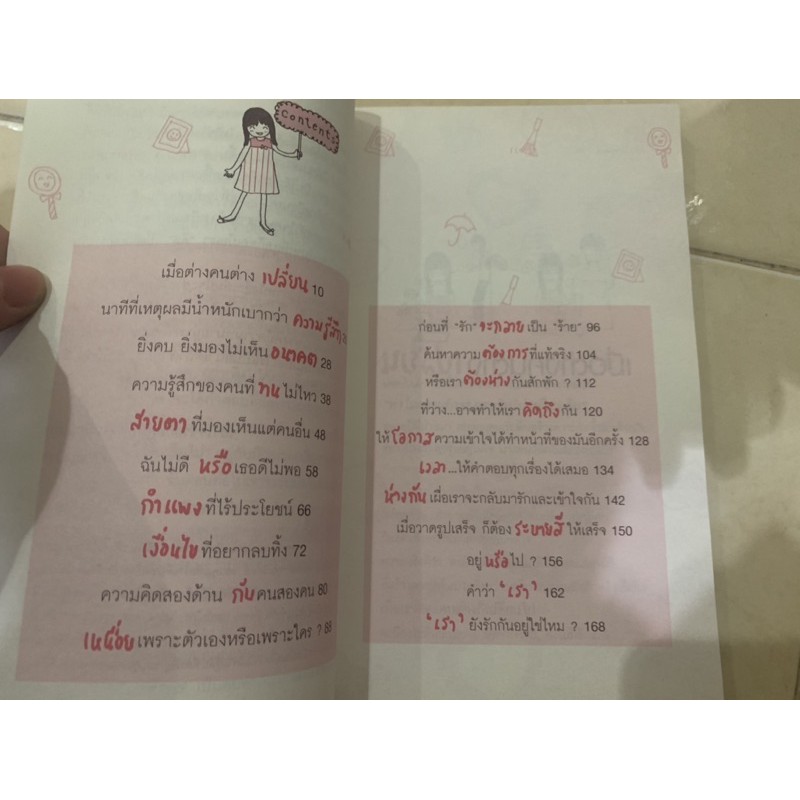 Content
เมื่อต่างคนต่าง เปลี่ยน 10
นาทีที่เหตุผลมีน้ำหนักเบากว่า ความรู้สึก
ยิ่งคบ ยิ่งมองไม่เห็น อนาคต 28
ความรู้สึกของคนที่ ทน ไม่ไหว 38
สายตา ที่มองเห็นแต่คนอื่น 48
ฉันไม่ดี หรือ เธอดีไม่พอ 58
กำแพง ที่ไร้ประโยชน์ 66
เงื่อนไข ที่อยากลบทิ้ง 72
ความคิดสองด้าน กับ คนสองคน 80
เหนื่อย เพราะตัวเองหรือเพราะใคร ? 88
ก่อนที่ "รัก" จะกลาย เป็น "ร้าย" 96
ค้นหาความ ต้องการ ที่แท้จริง 104
หรือเรา ต้องห่าง กันสักพัก ? 112
ที่ว่าง...อาจทำให้เรา คิดถึง กัน 120
ให้ โอกาส ความเข้าใจได้ทำหน้าที่ของมันอีกครั้ง 128
เวลา ...ให้คำตอบทุกเรื่องได้เสมอ 134
ห่างกัน เผื่อเราจะกลับมารักและเข้าใจกัน 142
เมื่อวาดรูปเสร็จ ก็ต้อง ระบายสี ให้เสร็จ 150
อยู่ หรือ ไป ? 156
คำว่า 'เรา' 162
'เรา' ยังรักกันอยู่ใช่ไหม ? 168